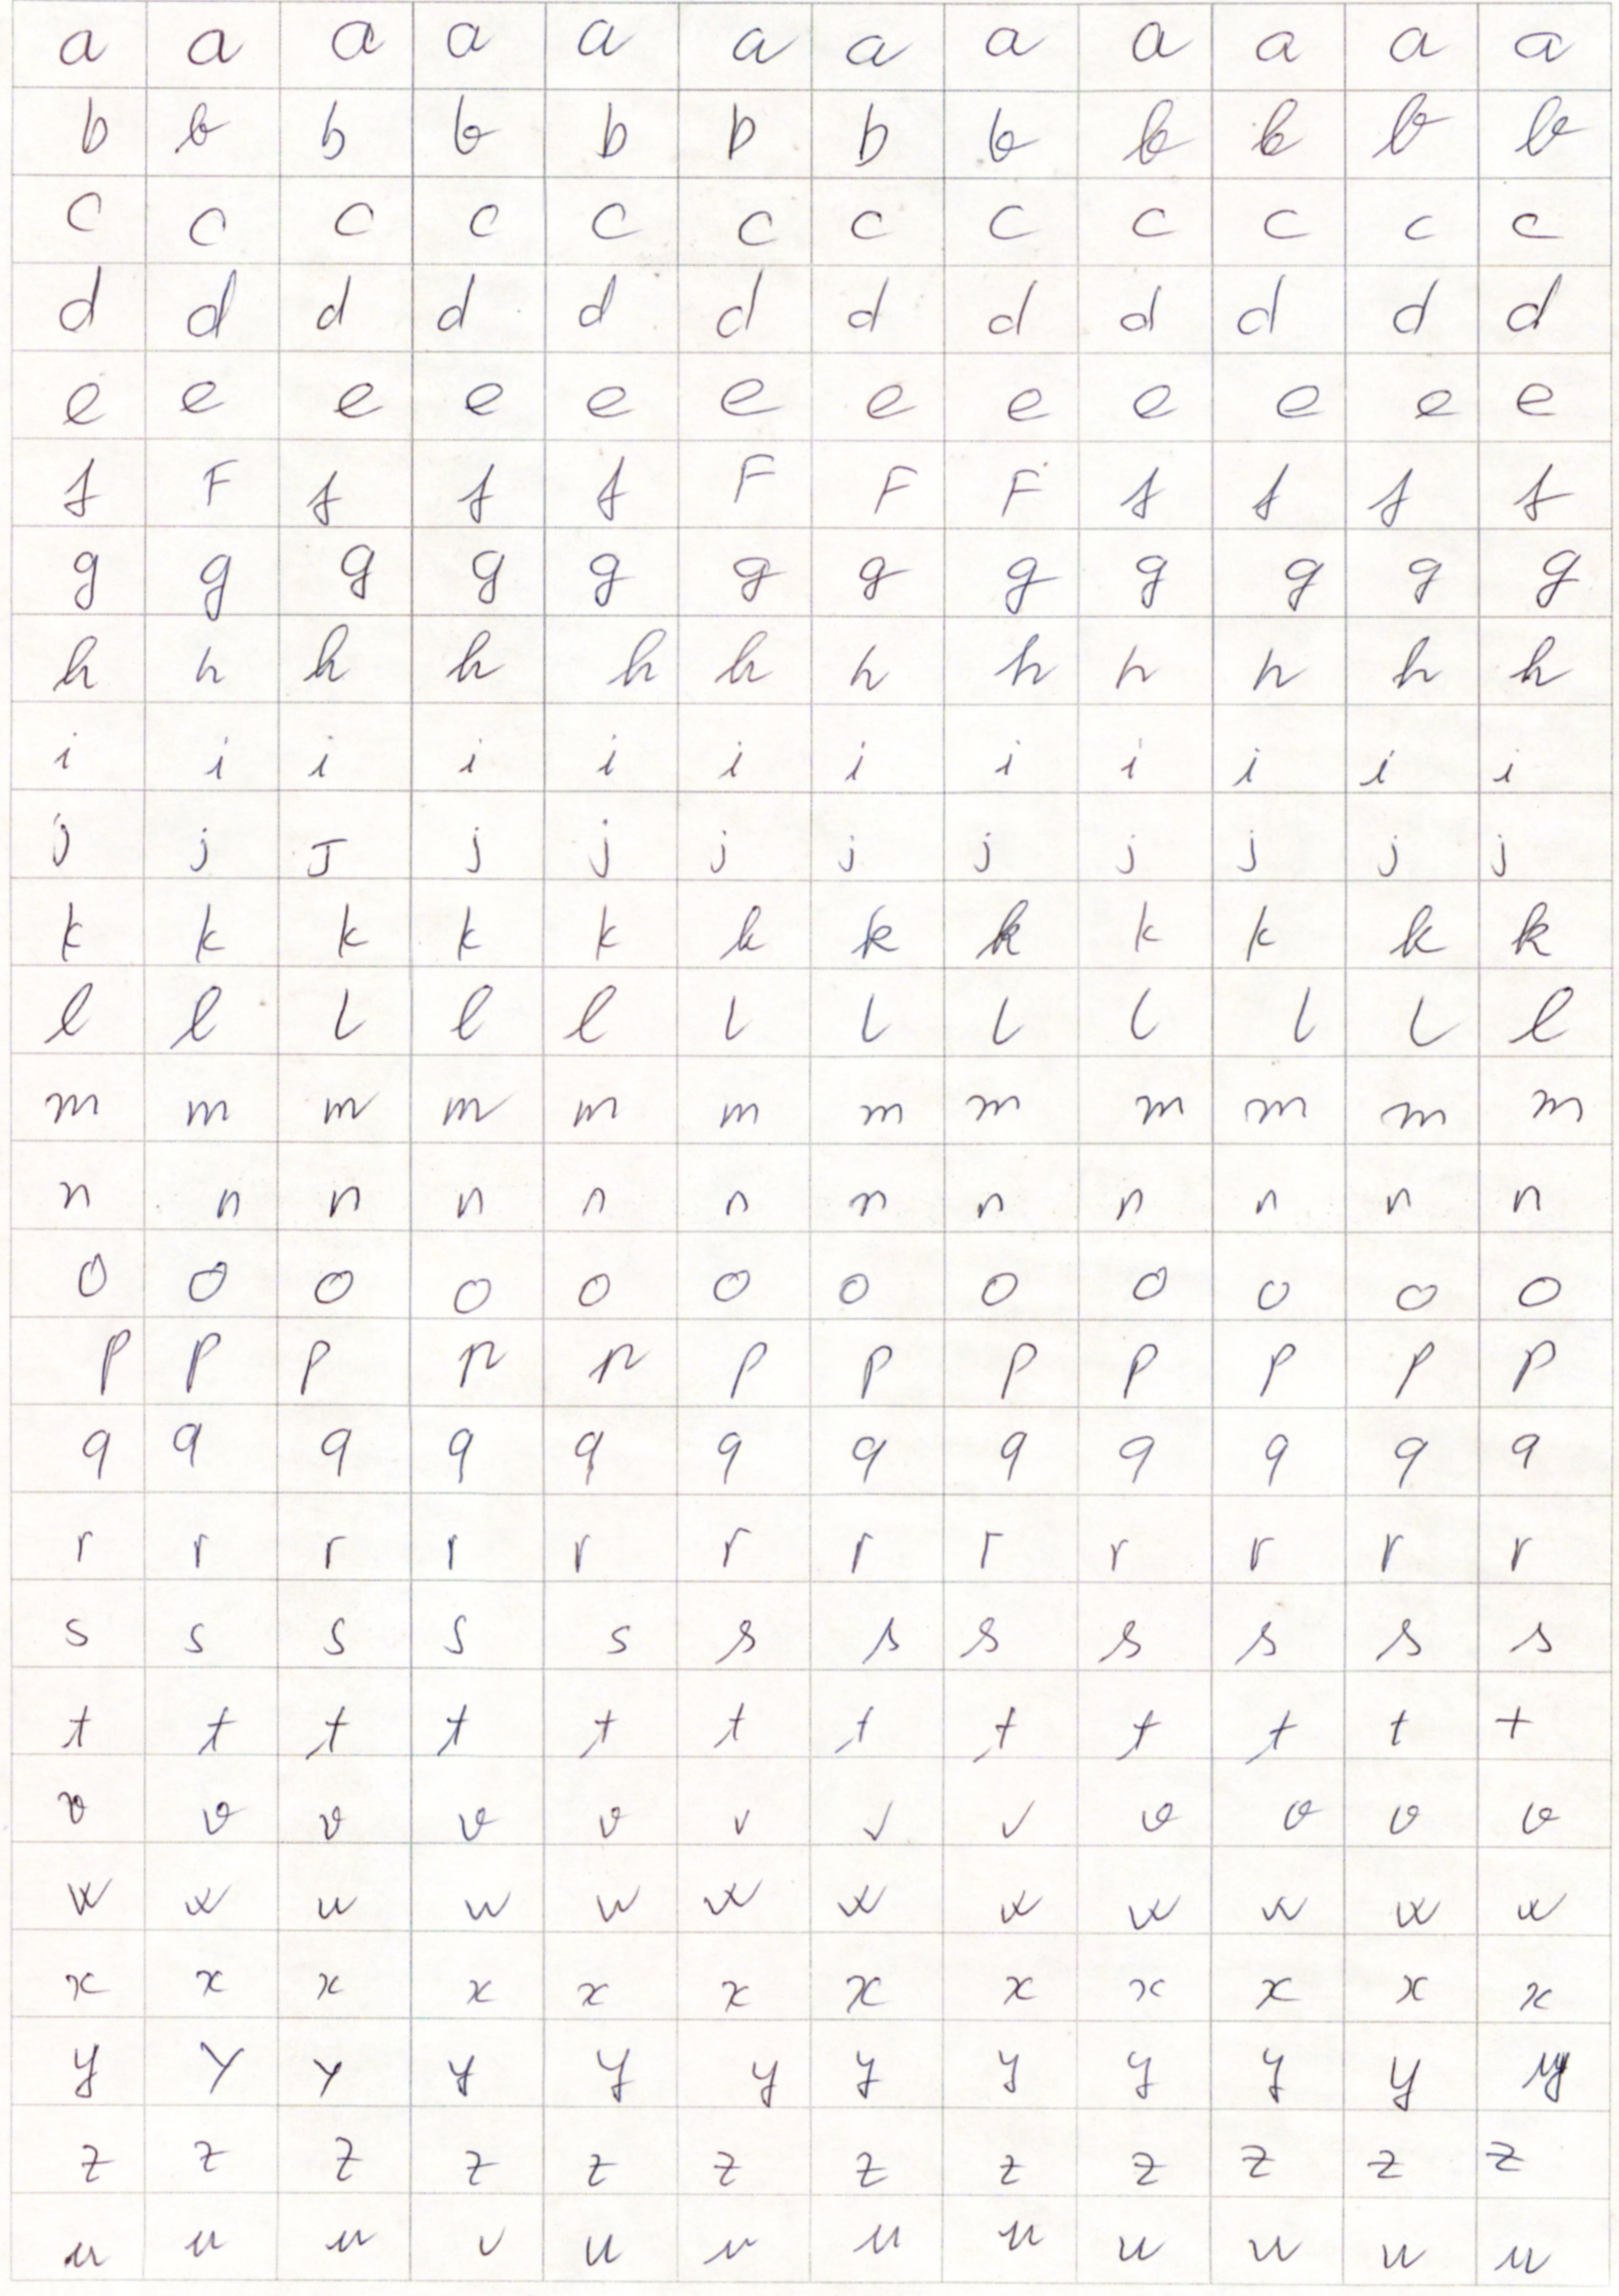 a a a a a a a a a a a a
b b b b b b b b b b b b
c c c c c c c c c c c c
d d d d d d d d d d d d
e e e e e e e e e e e e
f F f f f F F F f f f f
g g g g g g g g g g g g
h h h h h h h h h h h h
i i i i i i i i i i i i
j j J j j j j j j j j j
k k k k k k k k k k k k
l l l l l l l l l l l l
m m m m m m m m m m m m
n n n n n n n n n n n n
o o o o o o o o o o o o
p p p p p p p p p p p p
q q q q q q q q q q q q
r r r r r r r r r r r r
s s s s s s s s s s s s
t t t t t t t t t t t t
v v v v v v v v v v v v
w w w w w w w w w w w w
x x x x x x x x x x x x
y y y y y y y y y y y y
z z z z z z z z z z z z
u u u u u u u u u u u u